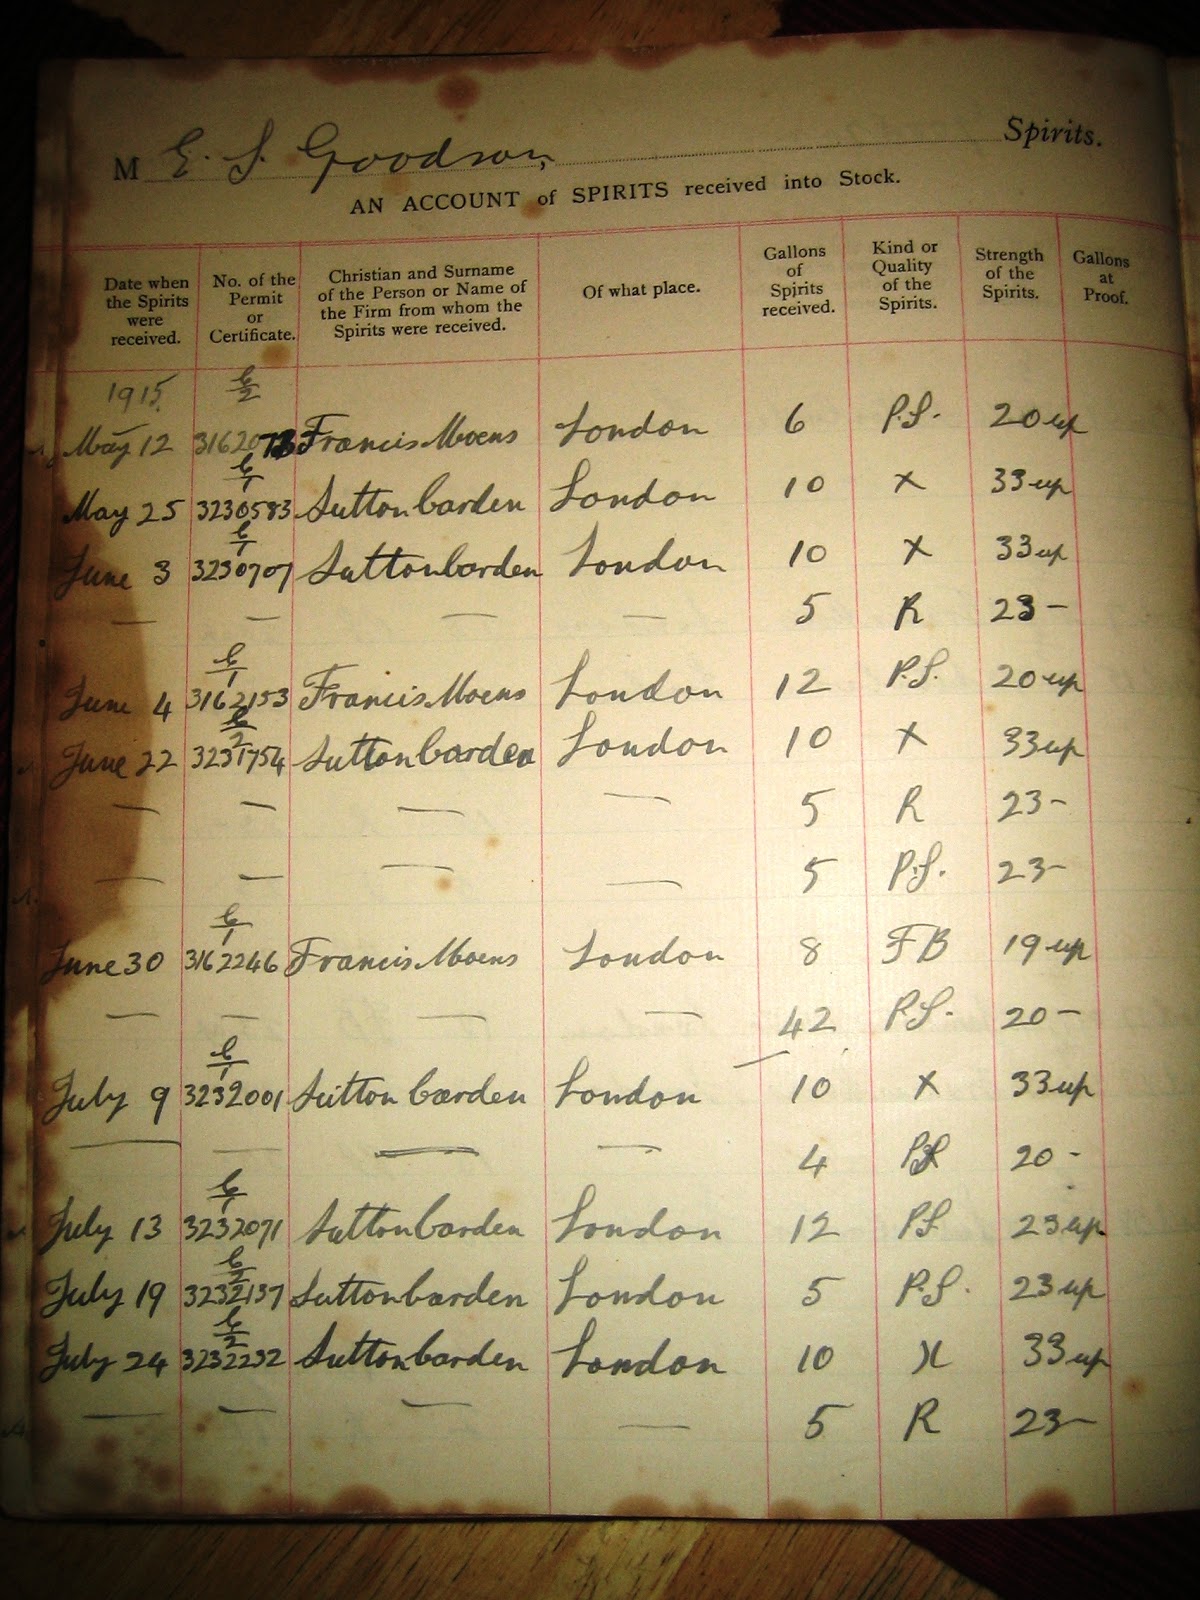 M E. S. Goodson Spirits.
AN ACCOUNT of SPIRITS received into Stock.
Date when the Spirits were received. No. of the Permit or Certificate. Christian and Surname of the Person or Name of the Firm from whom the Spirits were received. Of what place. Gallons of Spirits received. Kind or Quality of the Spirits. Strength of the Spirits. Gallons at Proof.
1915 6/2
May 12 Francis Moens London 6 P.S. 20 up
6/1
May 25 3230583 Sutton Carden London 10 X 33 up
6/1
June 3 3230707 Sutton Carden London 10 X 33 up
— — — — 5 R 23 –
6/1
June 4 3162153 Francis Moens London 12 P.S. 20 up
6/2
June 22 3231754 Sutton Carden London 10 X 33 up
— — — — 5 R 23 –
— — — — 5 P.S. 23 –
6/1
June 30 3162246 Francis Moens London 8 FB 19 up
— — — — 42 P.S. 20 –
6/1
July 9 3232001 Sutton Carden London 10 X 33 up
— — — — 4 PS 20 -
6/1
July 13 3232071 Sutton Carden London 12 PS 23 up
6/2
July 19 3232137 Sutton Carden London 5 P.S. 23 up
6/2
July 24 3232232 Sutton Carden London 10 X 33 up
— — — — 5 R 23 –